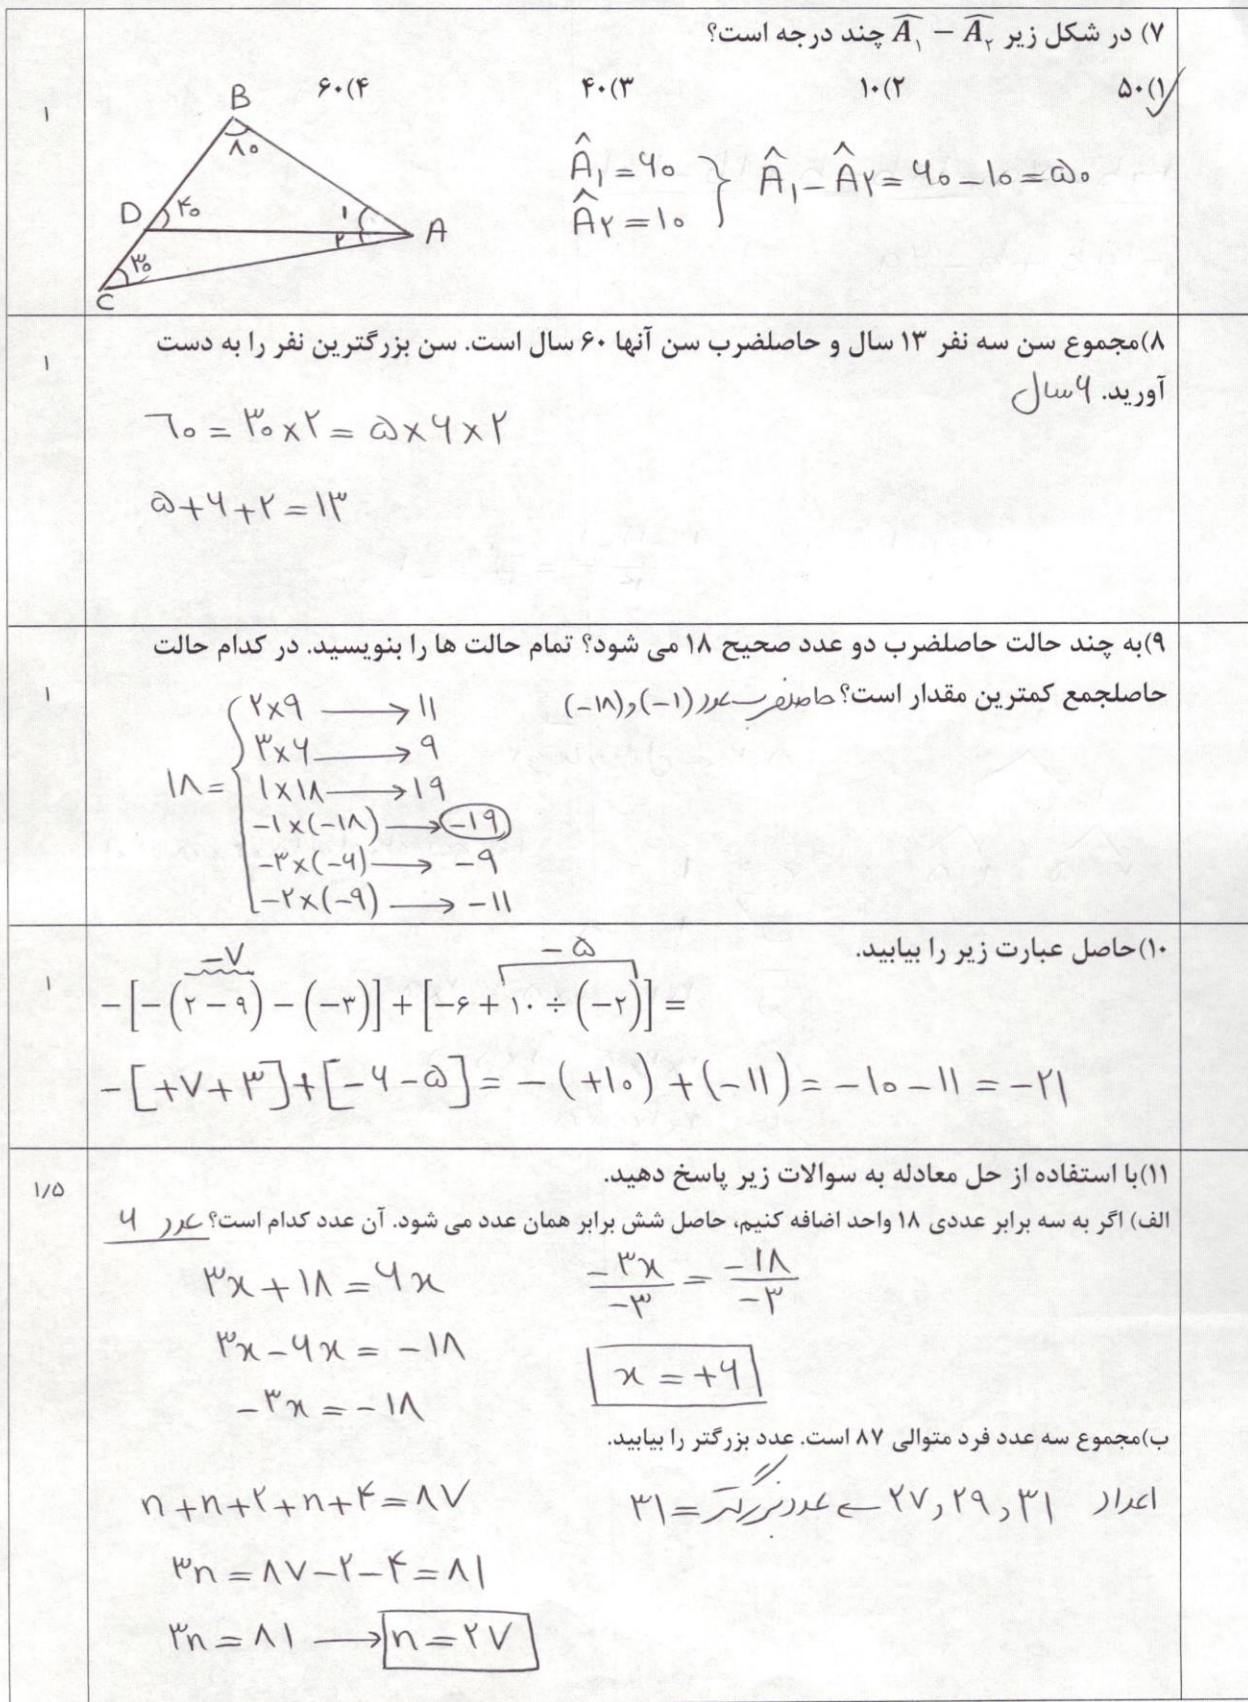 ۷) در شکل زیر Â₁ − Â₂ چند درجه است؟
۱) ۵۰ ۲) ۱۰ ۳) ۴۰ ۴) ۶۰
۱
B
۸۰
D ۴۰ ۱ ۲ A
۳۰
C
Â₁ = ۶۰
Â۲ = ۱۰
Â₁ − Â۲ = ۶۰ − ۱۰ = ۵۰
۸)مجموع سن سه نفر ۱۳ سال و حاصلضرب سن آنها ۶۰ سال است. سن بزرگترین نفر را به دست
آورید. ۶ سال
۱
۶۰ = ۳۰ × ۲ = ۵ × ۶ × ۲
۵ + ۶ + ۲ = ۱۳
۹)به چند حالت حاصلضرب دو عدد صحیح ۱۸ می شود؟ تمام حالت ها را بنویسید. در کدام حالت
حاصلجمع کمترین مقدار است؟ حاصلضرب عدد (−۱) و (−۱۸)
۱
۱۸ =
۲×۹ → ۱۱
۳×۶ → ۹
۱×۱۸ → ۱۹
−۱×(−۱۸) → −۱۹
−۳×(−۶) → −۹
−۲×(−۹) → −۱۱
۱۰)حاصل عبارت زیر را بیابید.
۱
−۷ −۵
−[−(۲ − ۹) − (−۳)] + [−۶ + ۱۰ ÷ (−۲)] =
−[+۷+۳]+[−۶−۵] = −(+۱۰) + (−۱۱) = −۱۰ − ۱۱ = −۲۱
۱۱)با استفاده از حل معادله به سوالات زیر پاسخ دهید.
۱/۵
الف) اگر به سه برابر عددی ۱۸ واحد اضافه کنیم، حاصل شش برابر همان عدد می شود. آن عدد کدام است؟ عدد ۶
۳x + ۱۸ = ۶x
۳x − ۶x = −۱۸
−۳x = −۱۸
−۳x/−۳ = −۱۸/−۳
x = +۶
ب)مجموع سه عدد فرد متوالی ۸۷ است. عدد بزرگتر را بیابید.
n+n+۲+n+۴=۸۷
۳n = ۸۷−۲−۴ = ۸۱
۳n = ۸۱ → n = ۲۷
اعداد ۳۱ و ۲۹ و ۲۷ ← عدد بزرگتر = ۳۱